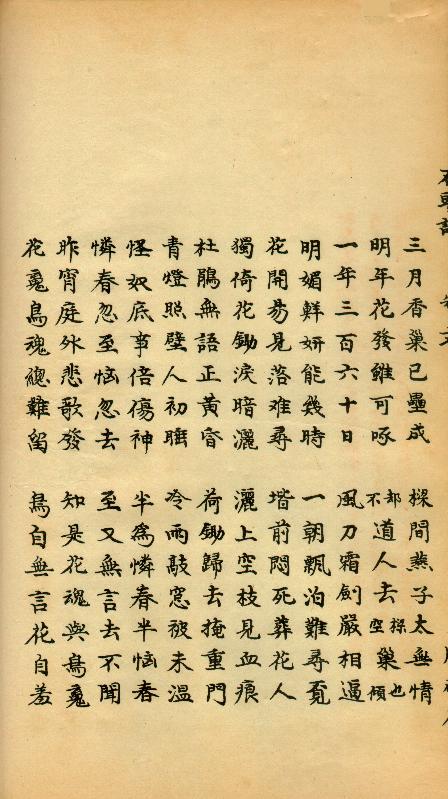 三月香巢已壘成 樑間燕子太無情
明年花發雖可啄 却不道人去樑空巢也傾
一年三百六十日 風刀霜劍嚴相逼
明媚鮮妍能幾時 一朝飄泊難尋覓
花開易見落难尋 堦前悶死葬花人
獨倚花鋤淚暗灑 灑上空枝見血痕
杜鵑無語正黃昏 荷鋤歸去掩重門
青燈照壁人初睡 冷雨敲窓被未溫
怪奴底事倍傷神 半為憐春半惱春
憐春忽至惱忽去 至又無言去不聞
昨宵庭外悲歌發 知是花魂與鳥䰟
花䰟鳥魂總難留 鳥自無言花自羞